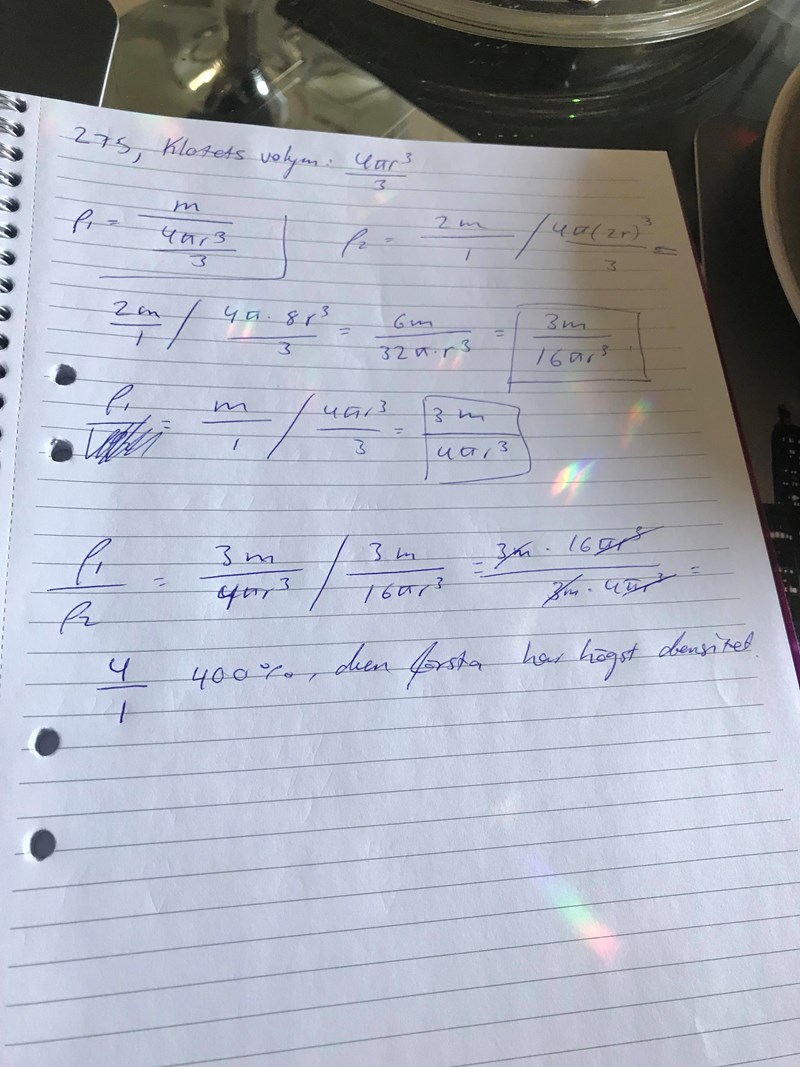 275, Klotets volym: 4πr³/3
ρ₁ = m/(4πr³/3) ρ₂ = 2m/1 / 4π(2r)³/3 =
2m/1 / 4π·8r³/3 = 6m/32π·r³ = 3m/16πr³
ρ₁ = m/1 / 4πr³/3 = 3m/4πr³
ρ₁/ρ₂ = 3m/4πr³ / 3m/16πr³ = 3m·16πr³/3m·4πr³ =
4/1 400%, den första har högst densitet.